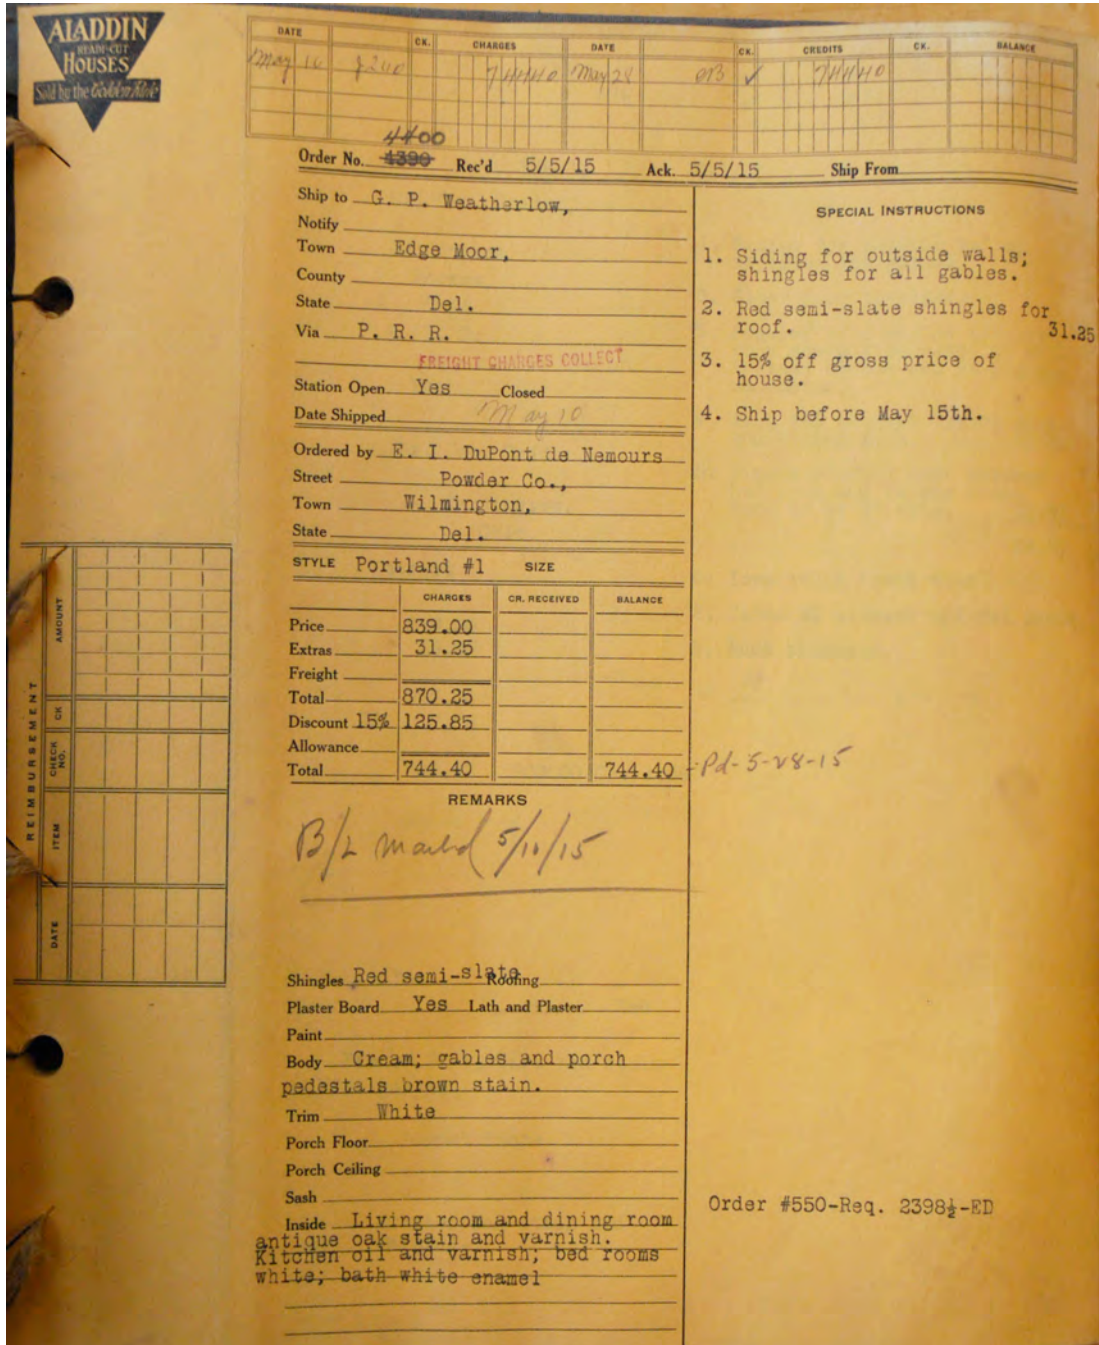 ALADDIN
READI-CUT
HOUSES
Sold by the Golden Rule
DATE CK. CHARGES DATE CK. CREDITS CK. BALANCE
May 10 744 40 May 28 ✓ 744 40
4400
Order No. 4390 Rec'd 5/5/15 Ack. 5/5/15 Ship From
Ship to G. P. Weatherlow,
Notify
Town Edge Moor,
County
State Del.
Via P. R. R.
FREIGHT CHARGES COLLECT
Station Open Yes Closed
Date Shipped May 10
Ordered by E. I. DuPont de Nemours
Street Powder Co.,
Town Wilmington,
State Del.
STYLE Portland #1 SIZE
CHARGES CR. RECEIVED BALANCE
Price 839.00
Extras 31.25
Freight
Total 870.25
Discount 15% 125.85
Allowance
Total 744.40 744.40 - Pd - 5-28-15
REMARKS
B/L mailed 5/10/15
Shingles Red semi-slate Roofing
Plaster Board Yes Lath and Plaster
Paint
Body Cream; gables and porch
pedestals brown stain.
Trim White
Porch Floor
Porch Ceiling
Sash
Inside Living room and dining room
antique oak stain and varnish.
Kitchen oil and varnish; bed rooms
white; bath white enamel
SPECIAL INSTRUCTIONS
1. Siding for outside walls;
shingles for all gables.
2. Red semi-slate shingles for
roof. 31.25
3. 15% off gross price of
house.
4. Ship before May 15th.
Order #550-Req. 2398½-ED
REIMBURSEMENT
DATE ITEM CHECK NO. CK AMOUNT